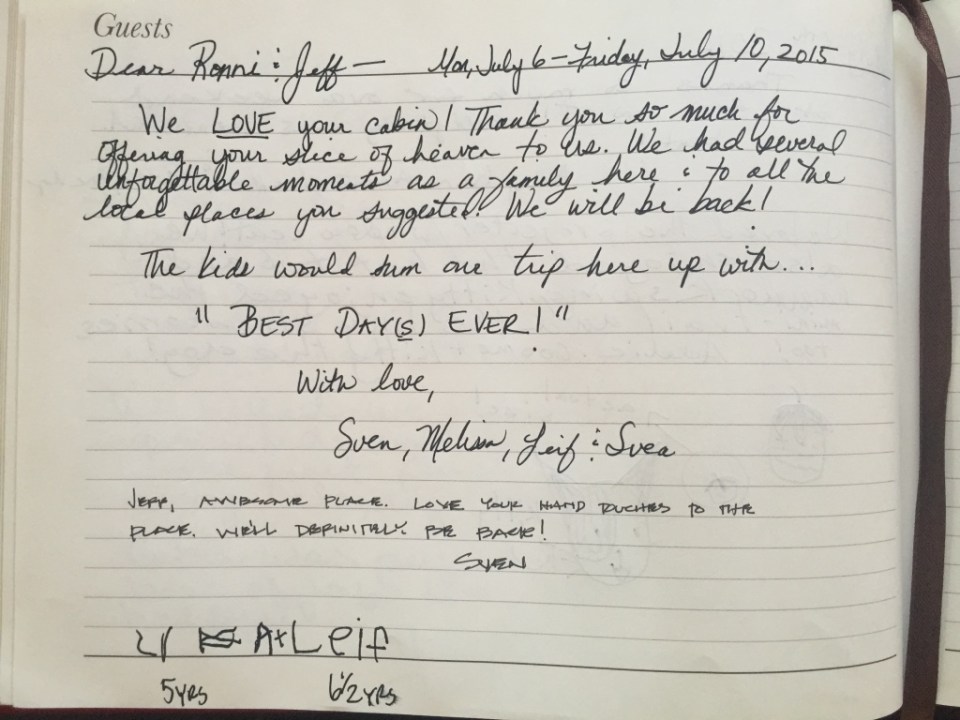 Guests
Dear Ronni & Jeff — Mon, July 6 - Friday, July 10, 2015
We LOVE your cabin! Thank you so much for
offering your slice of heaven to us. We had several
unforgettable moments as a family here & to all the
local places you suggested! We will be back!
The kids would sum our trip here up with...
"BEST DAY(S) EVER!"
With love,
Sven, Melissa, Leif & Svea
JEFF, AWESOME PLACE. LOVE YOUR HAND TOUCHES TO THE
PLACE. WE'LL DEFINITELY BE BACK!
SVEN
Leif
5YRS 6 1/2 YRS